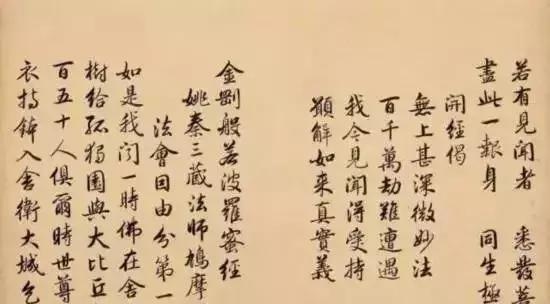 若有見聞者 悉發菩
盡此一報身 同生極
開經偈
無上甚深微妙法
百千萬劫難遭遇
我今見聞得受持
願解如来真實義
金剛般若波羅蜜經
姚秦三藏法師鳩摩
法會因由分第一
如是我聞一時佛在舍
樹給孤獨園與大比丘
百五十人俱爾時世尊
衣持鉢入舍衛大城乞